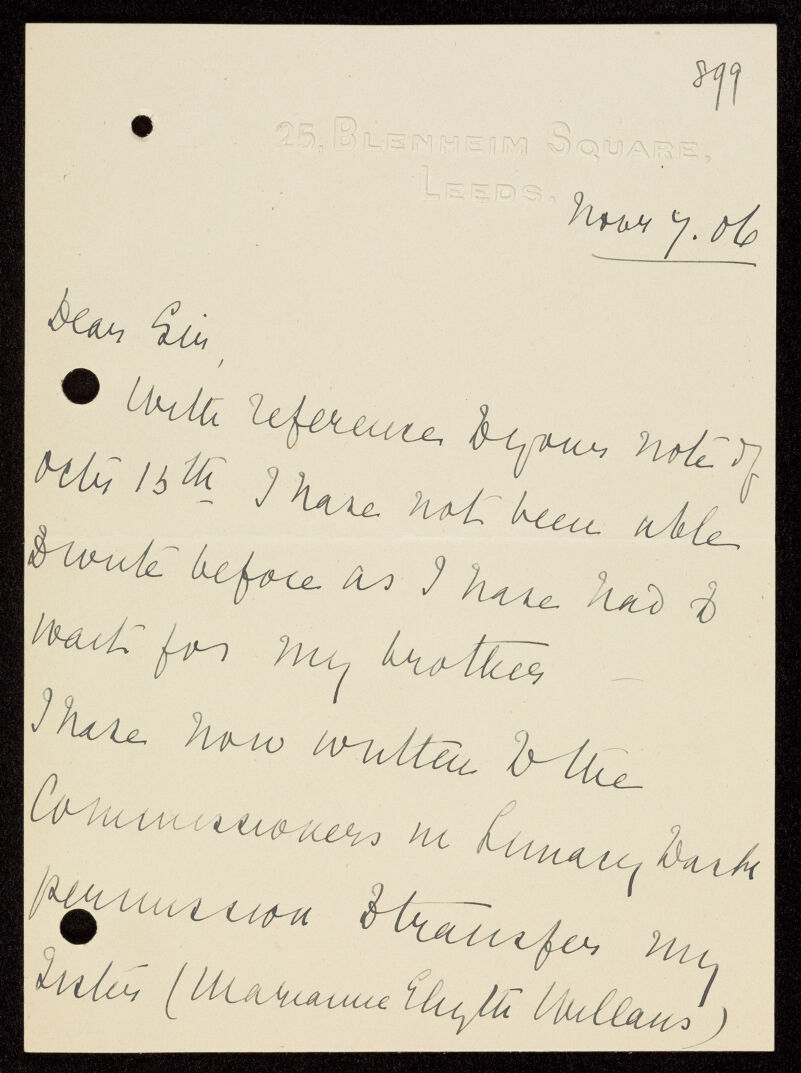 899
25, BLENHEIM SQUARE,
LEEDS.
Novr 7. 06
Dear Sir,
With reference to your note of
Octr 15th I have not been able
to write before as I have had to
wait for my brother —
I have now written to the
Commissioners in Lunacy to ask
permission to transfer my
Sister (Marianne Willans)